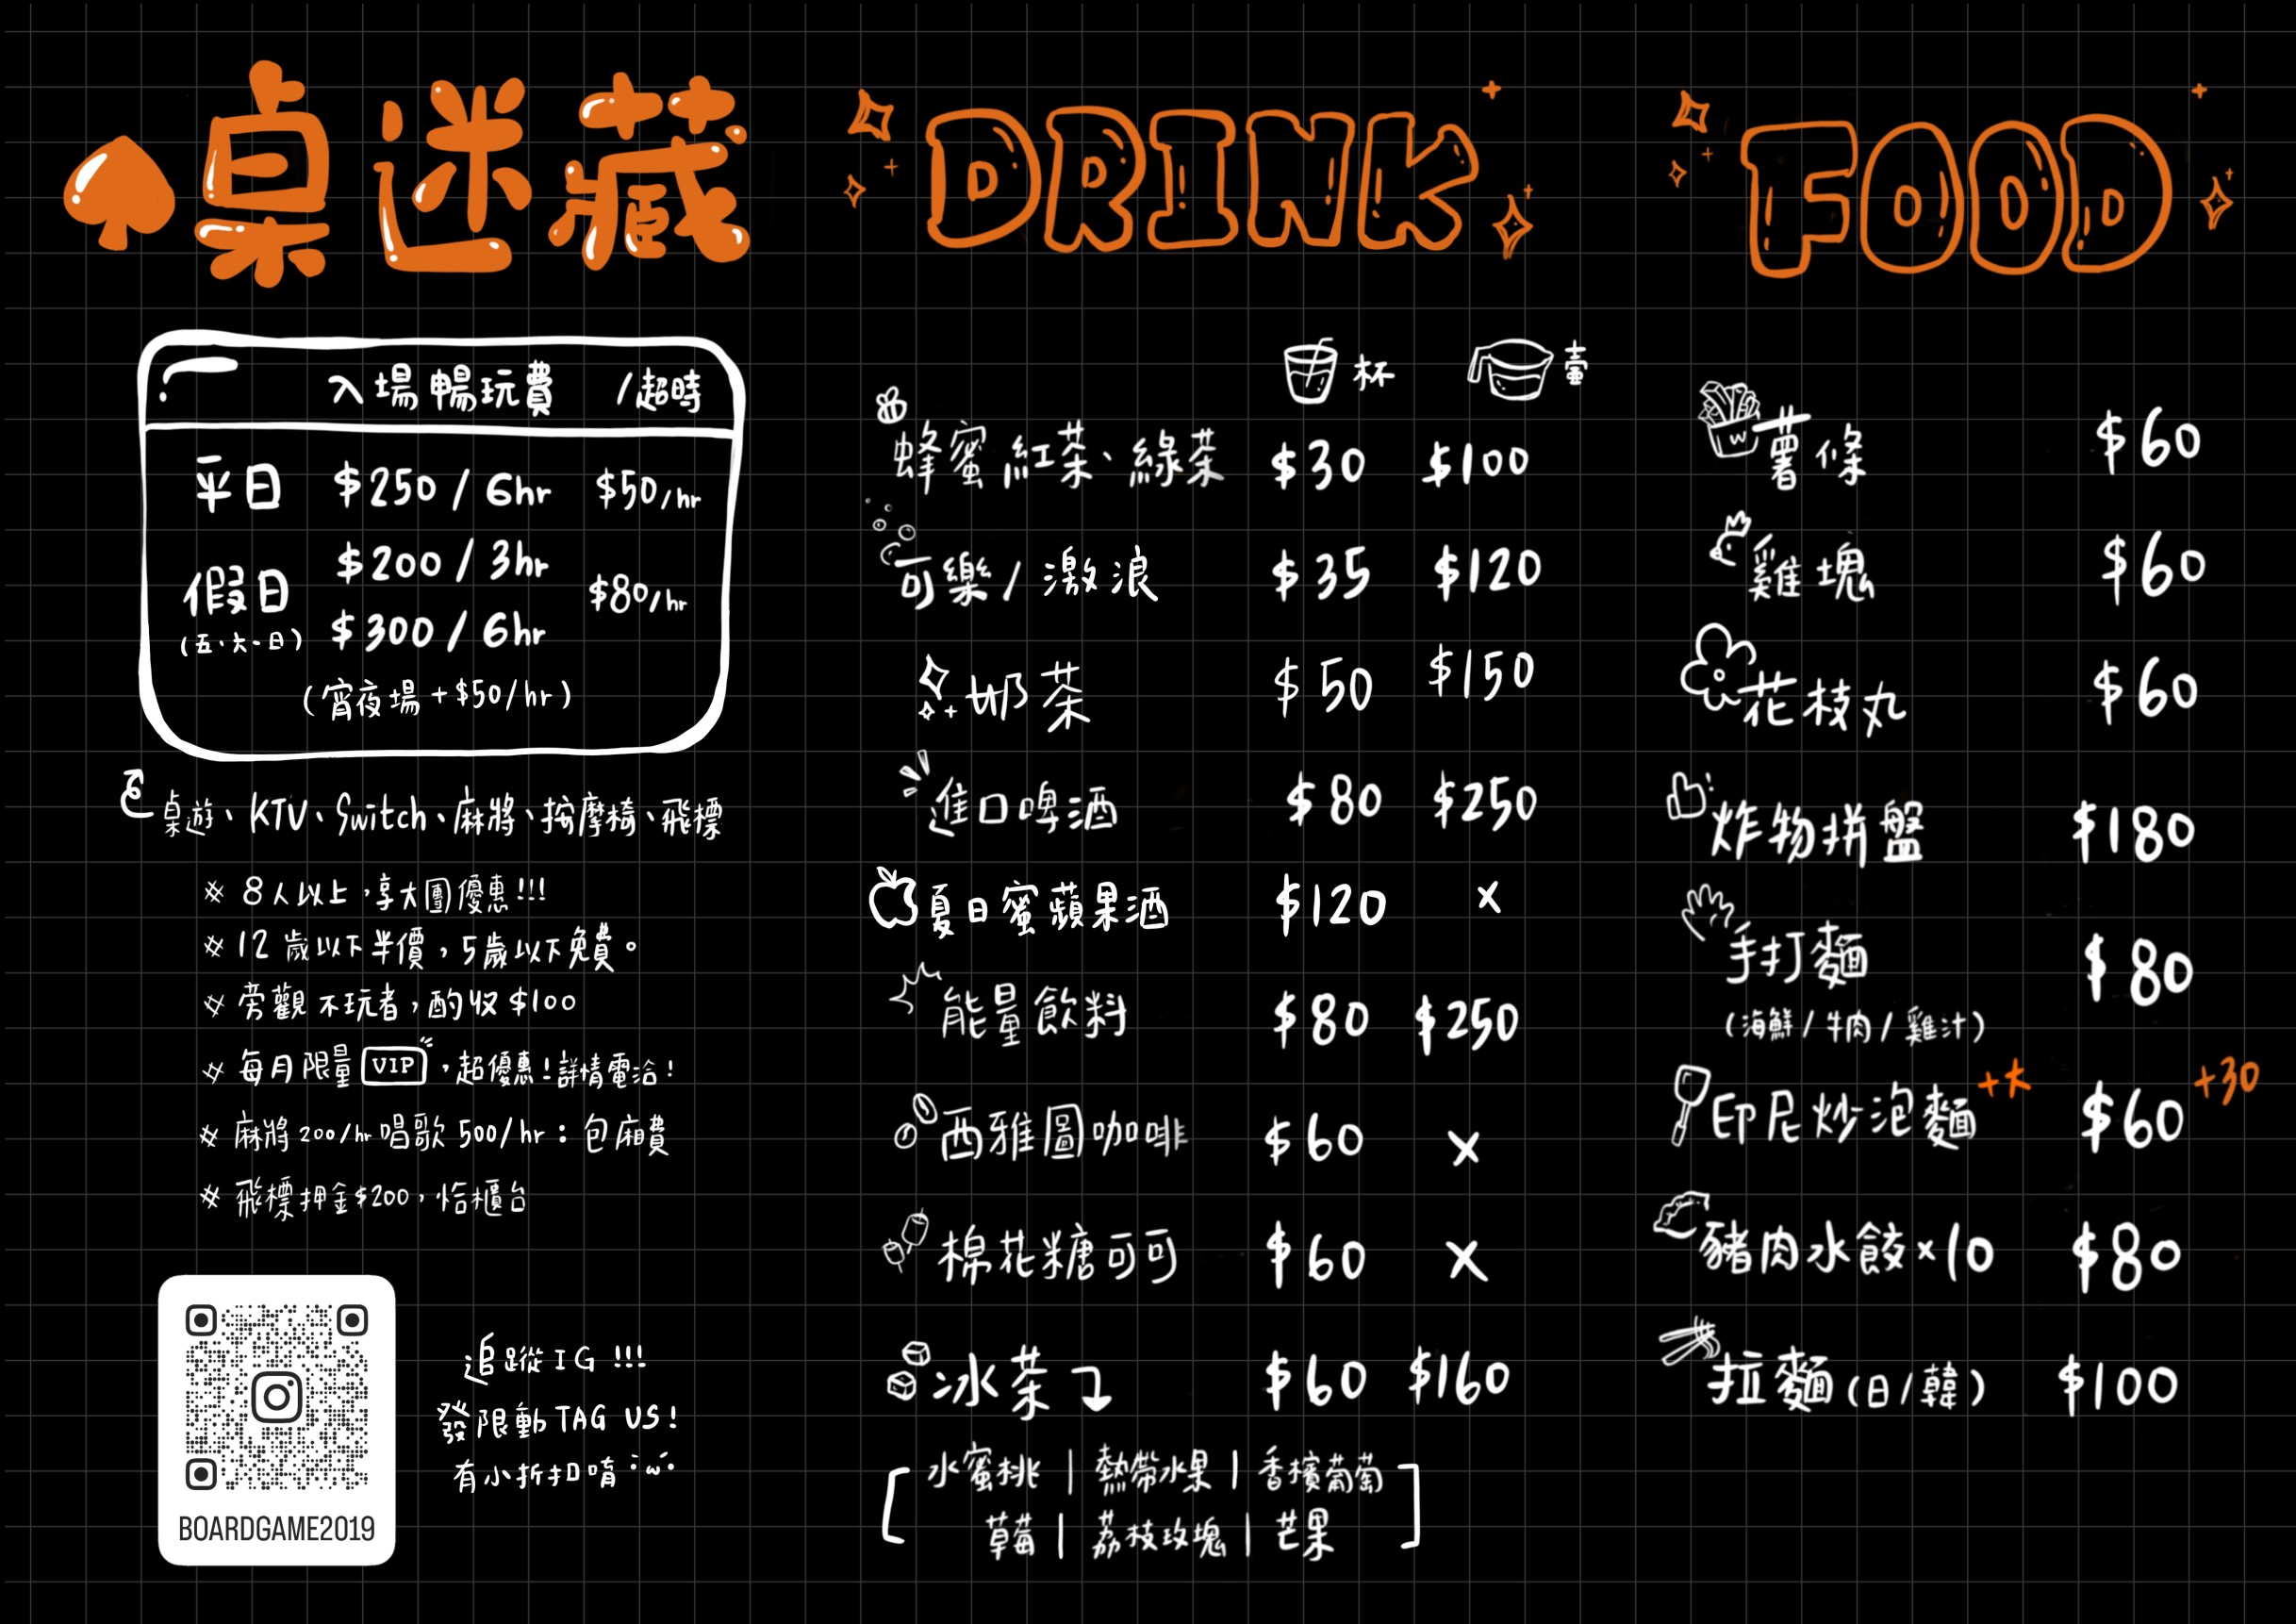 桌迷藏
入場暢玩費 /超時
平日 $250 / 6hr $50/hr
假日 $200 / 3hr $80/hr
(五.六.日) $300 / 6hr
(宵夜場 + $50/hr)
桌遊、KTV、Switch、麻將、按摩椅、飛標
※ 8人以上,享大團優惠!!!
※ 12歲以下半價,5歲以下免費。
※ 旁觀不玩者,酌收$100
※ 每月限量 VIP,超優惠!詳情電洽!
※ 麻將200/hr 唱歌500/hr:包廂費
※ 飛標押金$200,洽櫃台
BOARDGAME2019
追蹤IG !!!
發限動TAG US!
有小折扣唷
DRINK
杯 壺
蜂蜜紅茶、綠茶 $30 $100
可樂/激浪 $35 $120
奶茶 $50 $150
進口啤酒 $80 $250
夏日蜜蘋果酒 $120 x
能量飲料 $80 $250
西雅圖咖啡 $60 x
棉花糖可可 $60 x
冰茶 $60 $160
水蜜桃 | 熱帶水果 | 香檳葡萄
草莓 | 荔枝玫瑰 | 芒果
FOOD
薯條 $60
雞塊 $60
花枝丸 $60
炸物拼盤 $180
手打麵 $80
(海鮮/牛肉/雞汁)
印尼炒泡麵 +大 $60 +30
豬肉水餃×10 $80
拉麵(日/韓) $100